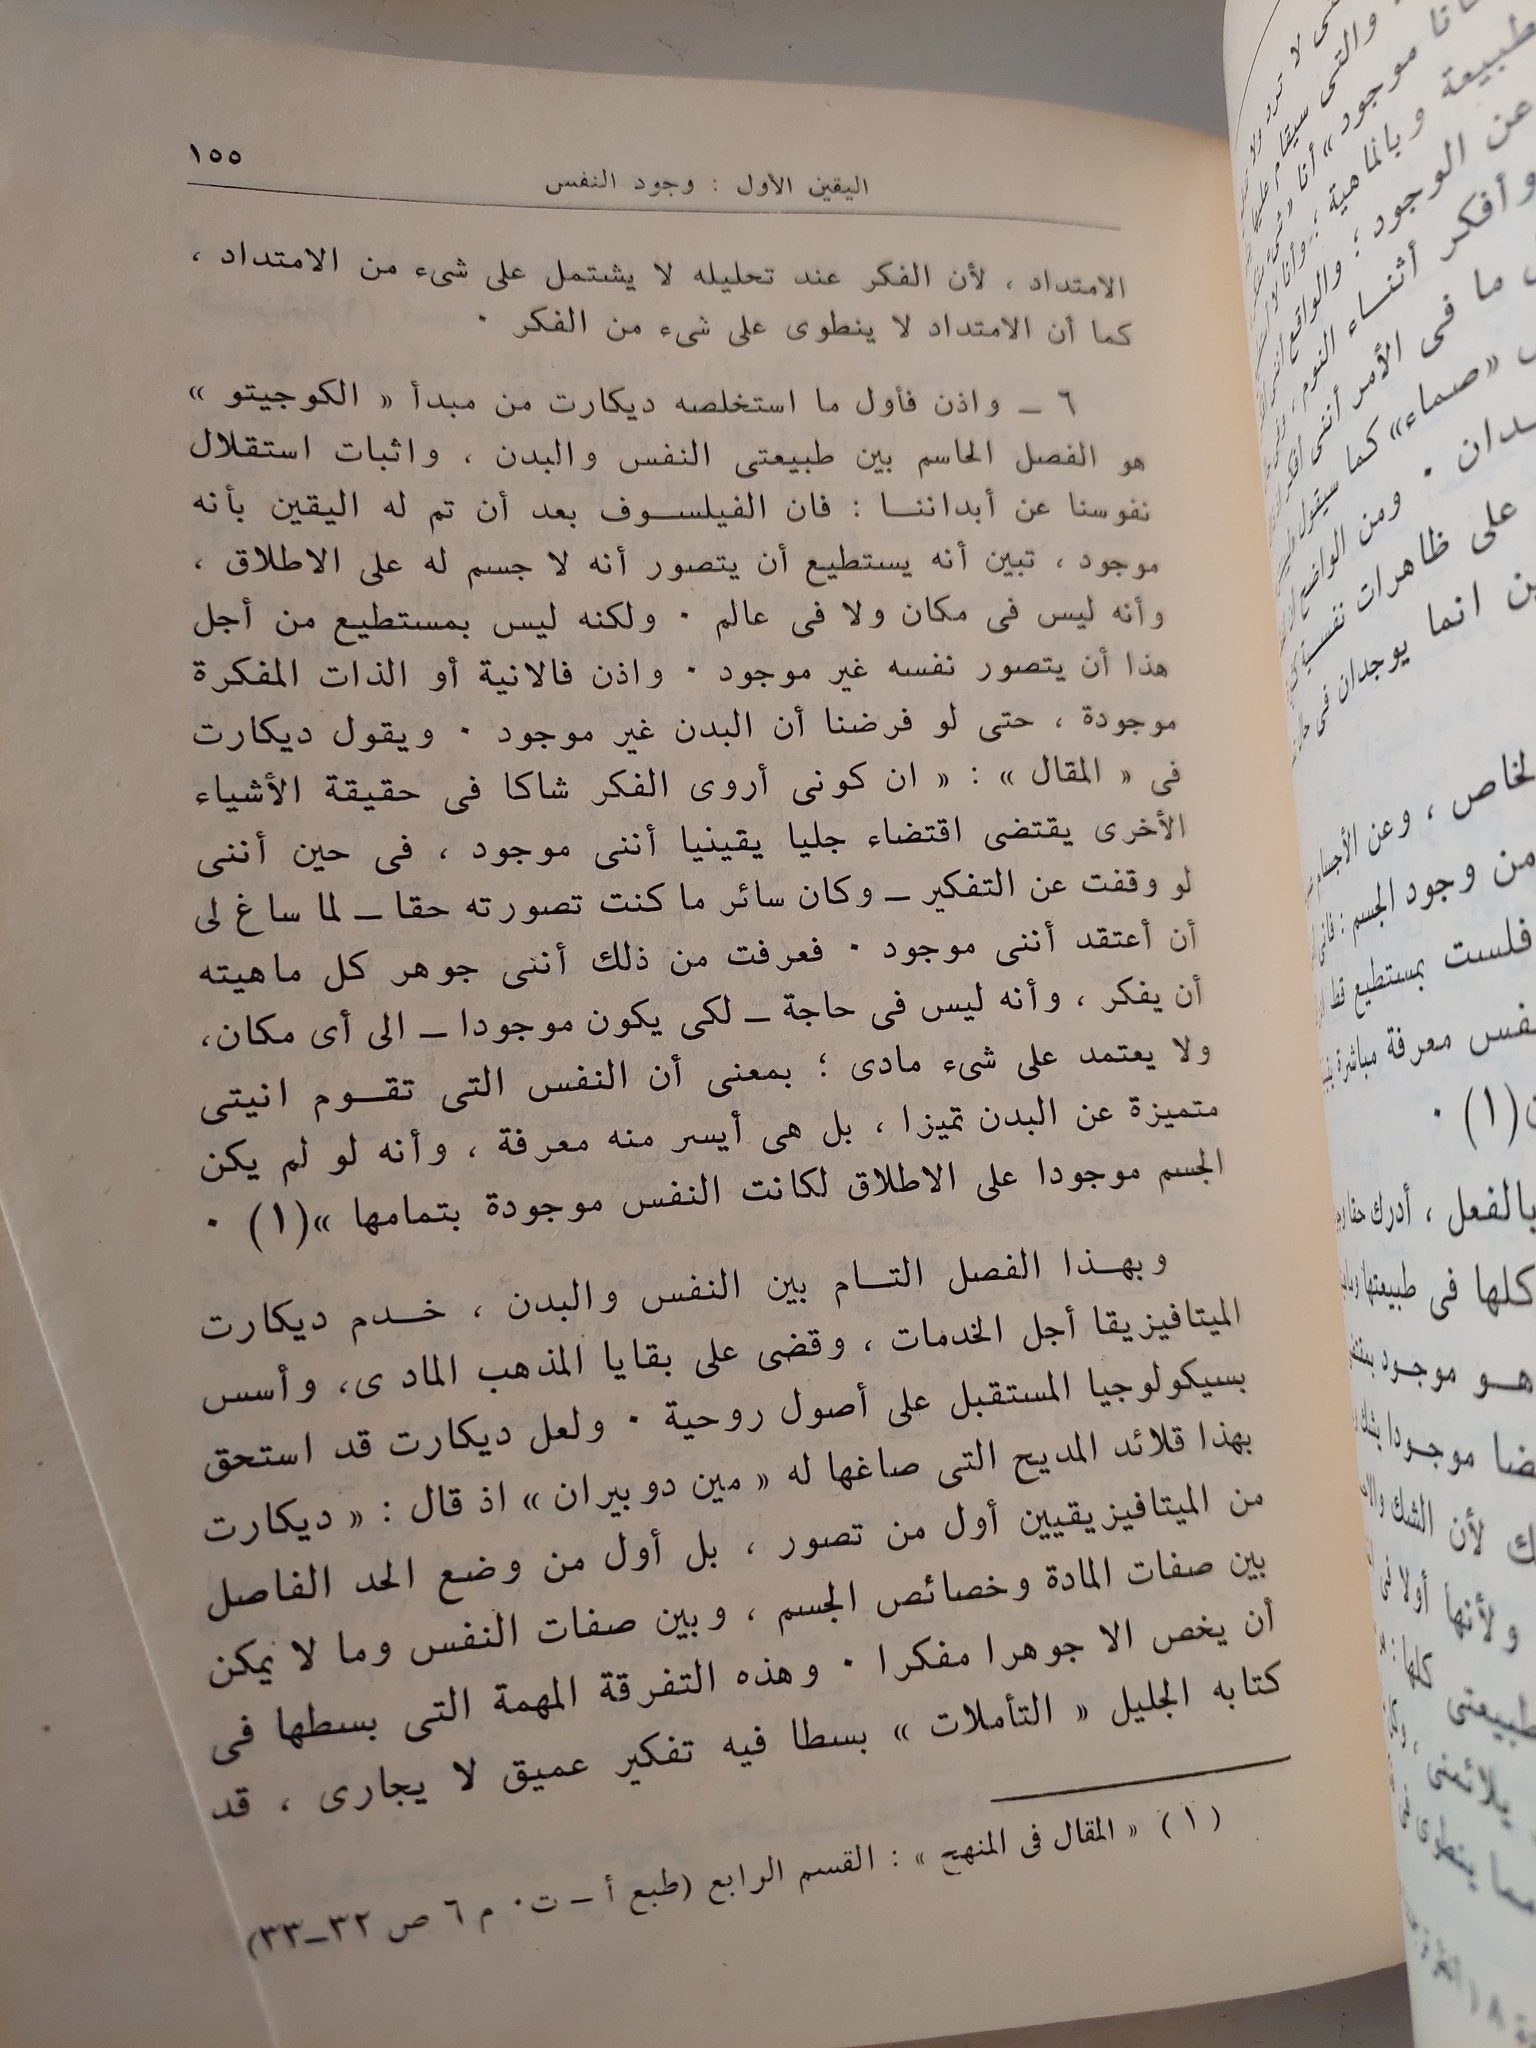 ١٥٥
اليقين الأول : وجود النفس
الامتداد ، لأن الفكر عند تحليله لا يشتمل على شىء من الامتداد ،
كما أن الامتداد لا ينطوى على شىء من الفكر ٠
٦ ــ واذن فأول ما استخلصه ديكارت من مبدأ « الكوجيتو »
هو الفصل الحاسم بين طبيعتى النفس والبدن ، واثبات استقلال
نفوسنا عن أبداننا : فان الفيلسوف بعد أن تم له اليقين بأنه
موجود ، تبين أنه يستطيع أن يتصور أنه لا جسم له على الاطلاق ،
وأنه ليس فى مكان ولا فى عالم ٠ ولكنه ليس بمستطيع من أجل
هذا أن يتصور نفسه غير موجود ٠ واذن فالانية أو الذات المفكرة
موجودة ، حتى لو فرضنا أن البدن غير موجود ٠ ويقول ديكارت
فى « المقال » : « ان كونى أروى الفكر شاكا فى حقيقة الأشياء
الأخرى يقتضى اقتضاء جليا يقينيا أننى موجود ، فى حين أننى
لو وقفت عن التفكير ــ وكان سائر ما كنت تصورته حقا ــ لما ساغ لى
أن أعتقد أننى موجود ٠ فعرفت من ذلك أننى جوهر كل ماهيته
أن يفكر ، وأنه ليس فى حاجة ــ لكى يكون موجودا ــ الى أى مكان،
ولا يعتمد على شىء مادى ؛ بمعنى أن النفس التى تقوم انيتى
متميزة عن البدن تميزا ، بل هى أيسر منه معرفة ، وأنه لو لم يكن
الجسم موجودا على الاطلاق لكانت النفس موجودة بتمامها »(١) ٠
وبهذا الفصل التام بين النفس والبدن ، خدم ديكارت
الميتافيزيقا أجل الخدمات ، وقضى على بقايا المذهب المادى، وأسس
بسيكولوجيا المستقبل على أصول روحية ٠ ولعل ديكارت قد استحق
بهذا قلائد المديح التى صاغها له « مين دو بيران » اذ قال : « ديكارت
من الميتافيزيقيين أول من تصور ، بل أول من وضع الحد الفاصل
بين صفات المادة وخصائص الجسم ، وبين صفات النفس وما لا يمكن
أن يخص الا جوهرا مفكرا ٠ وهذه التفرقة المهمة التى بسطها فى
كتابه الجليل « التأملات » بسطا فيه تفكير عميق لا يجارى ، قد
(١) « المقال فى المنهج » : القسم الرابع (طبع أ ــ ت٠ م ٦ ص ٣٢ــ٣٣)
موجود» أنا
عن الوجود ؛ والواقع
وأفكر أثناء النوم ،
ما فى الأمر أننى أفكر
«صماء» كما سيقول
ومن الواضح أن
على ظاهرات نفسية
انما يوجدان فى
، وعن الأجسام
من وجود الجسم : فانى
فلست بمستطيع قط
معرفة مباشرة
(١) ٠
بالفعل ، أدرك حقا
كلها فى طبيعتها
هو موجود
موجودا
لأن الشك
ولأنها أولا فى